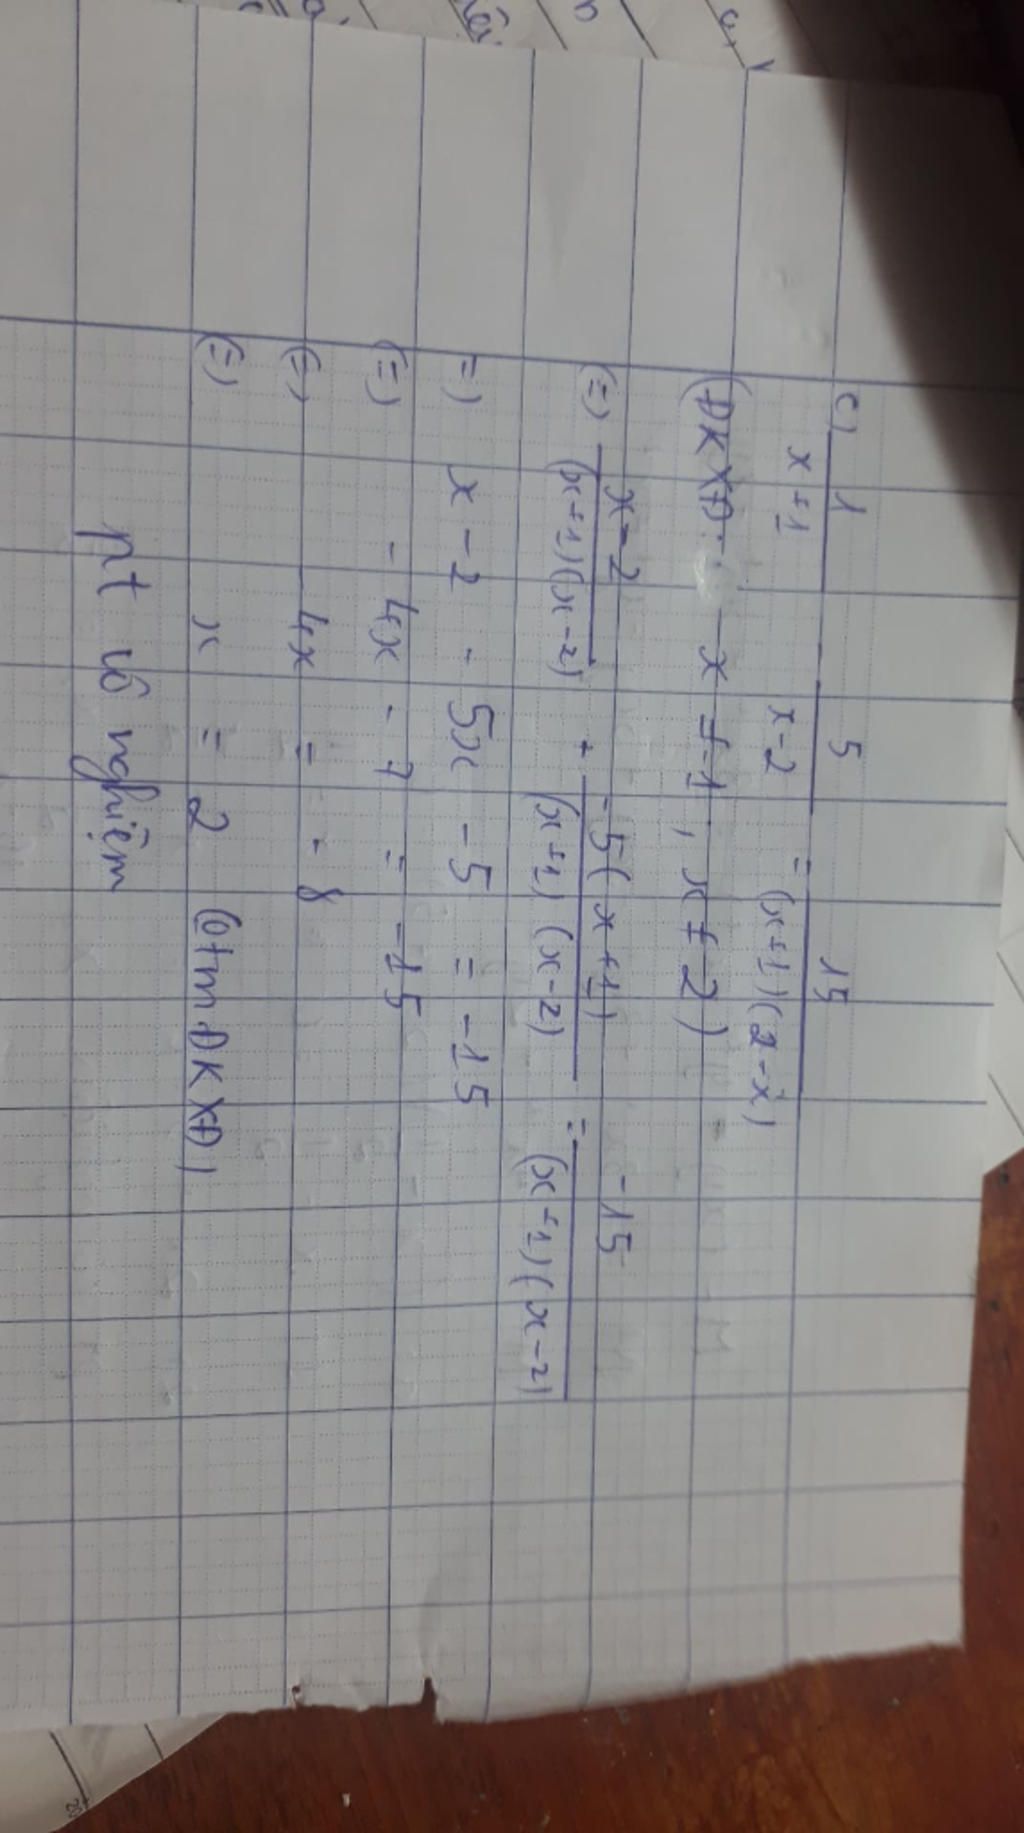 c) 1/(x+1) - 5/(x-2) = 15/((x+1)(2-x))
(ĐKXĐ: x ≠ -1, x ≠ 2)
(=) x-2/((x+1)(x-2)) + -5(x+1)/((x+1)(x-2)) = -15/((x+1)(x-2))
=) x - 2 - 5x - 5 = -15
(=) - 4x - 7 = -15
(=) 4x = - 8
(=) x = 2 (0tm ĐKXĐ)
pt vô nghiệm